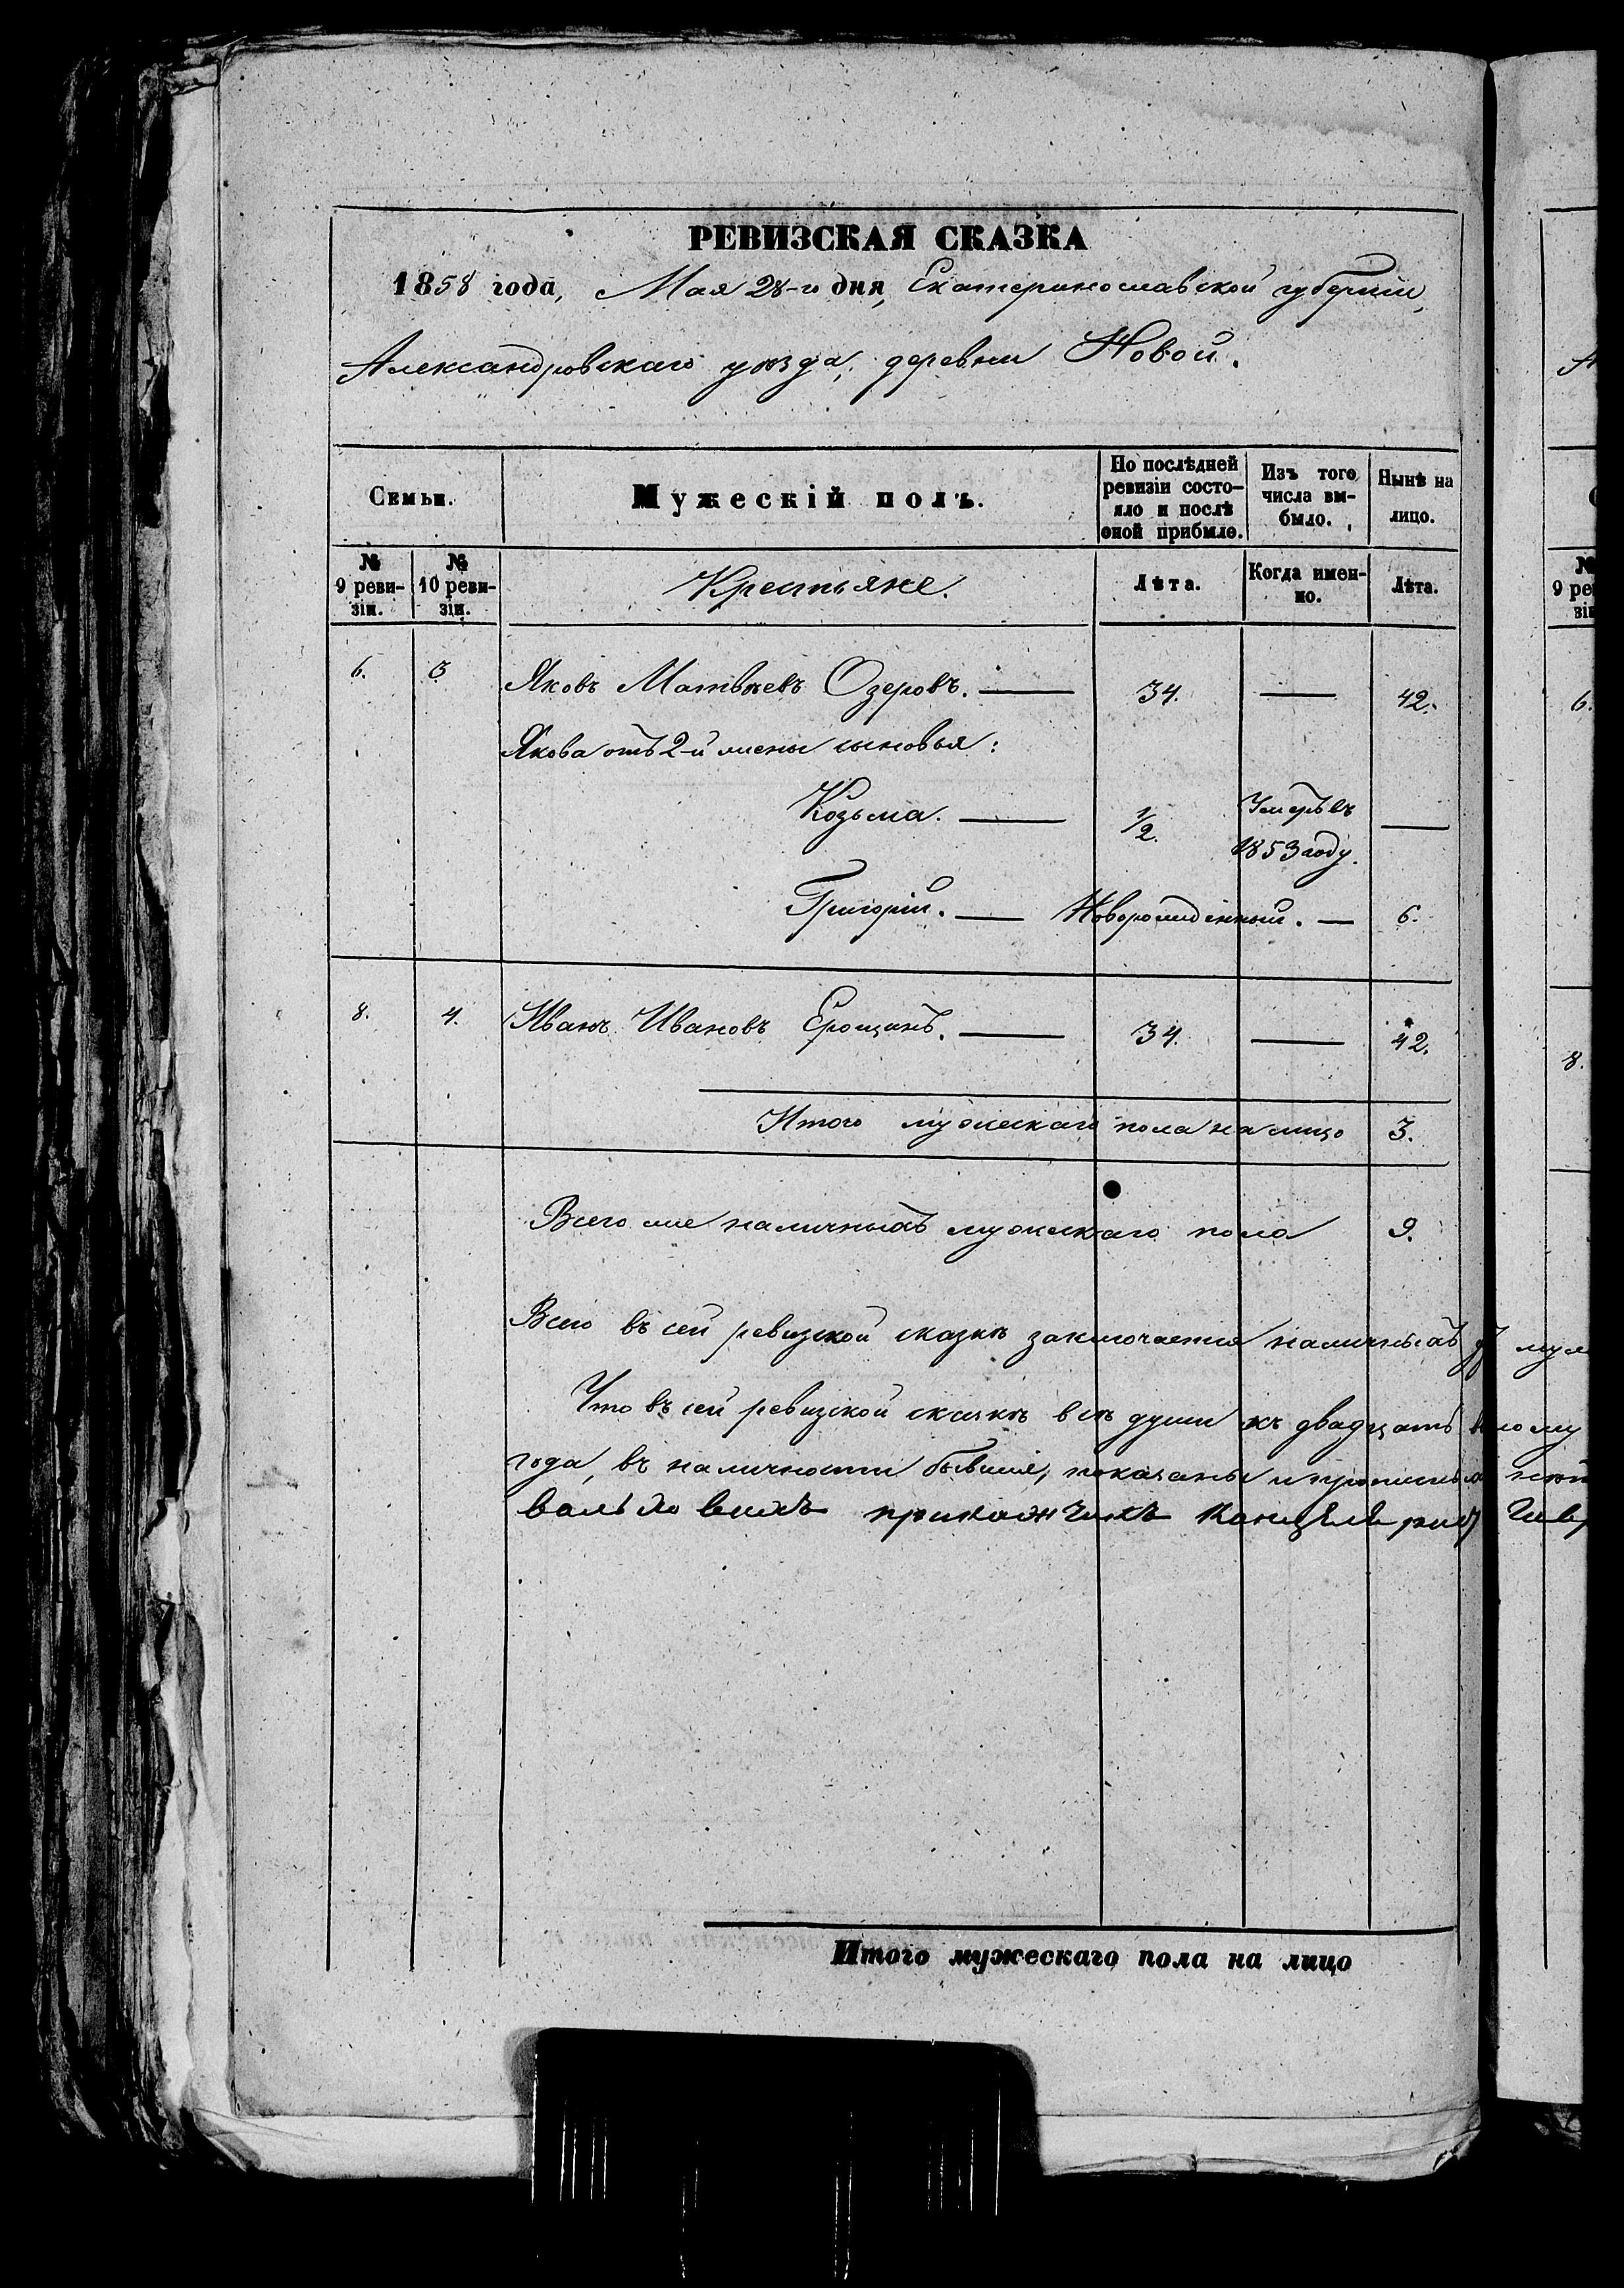 РЕВИЗСКАЯ СКАЗКА
1858 года, Мая 28-го дня, Екатеринославской губернiи,
Александровскаго уѣзда, деревни Новой.
Семьи.
Мужескiй полъ.
По послѣдней ревизiи состо-
яло и послѣ
оной прибыло.
Изъ того
числа вы-
было.
Нынѣ на
лицо.
№
9 реви-
зiи.
№
10 реви-
зiи.
Крестьяне.
Лѣта.
Когда имен-
но.
Лѣта.
6. 3 Яковъ Матвѣевъ Озеровъ. — 34. — 42.
Якова отъ 2-й жены сыновья:
Козьма. — 1/2. Умеръ въ 1853 году. —
Григорiй. — Новорожденный. — 6.
8. 4. Иванъ Ивановъ Ерощинъ. — 34. — 42.
Итого мужескаго пола на лицо 3.
Всего же наличныхъ мужескаго пола 9.
Всего въ сей ревизской сказкѣ заключается наличныхъ
Что въ сей ревизской сказкѣ всѣ души къ двадцать
года, въ наличности бывшiя, показаны и
прикажчикъ
Итого мужескаго пола на лицо
№
9 ре
зi
6.
8.